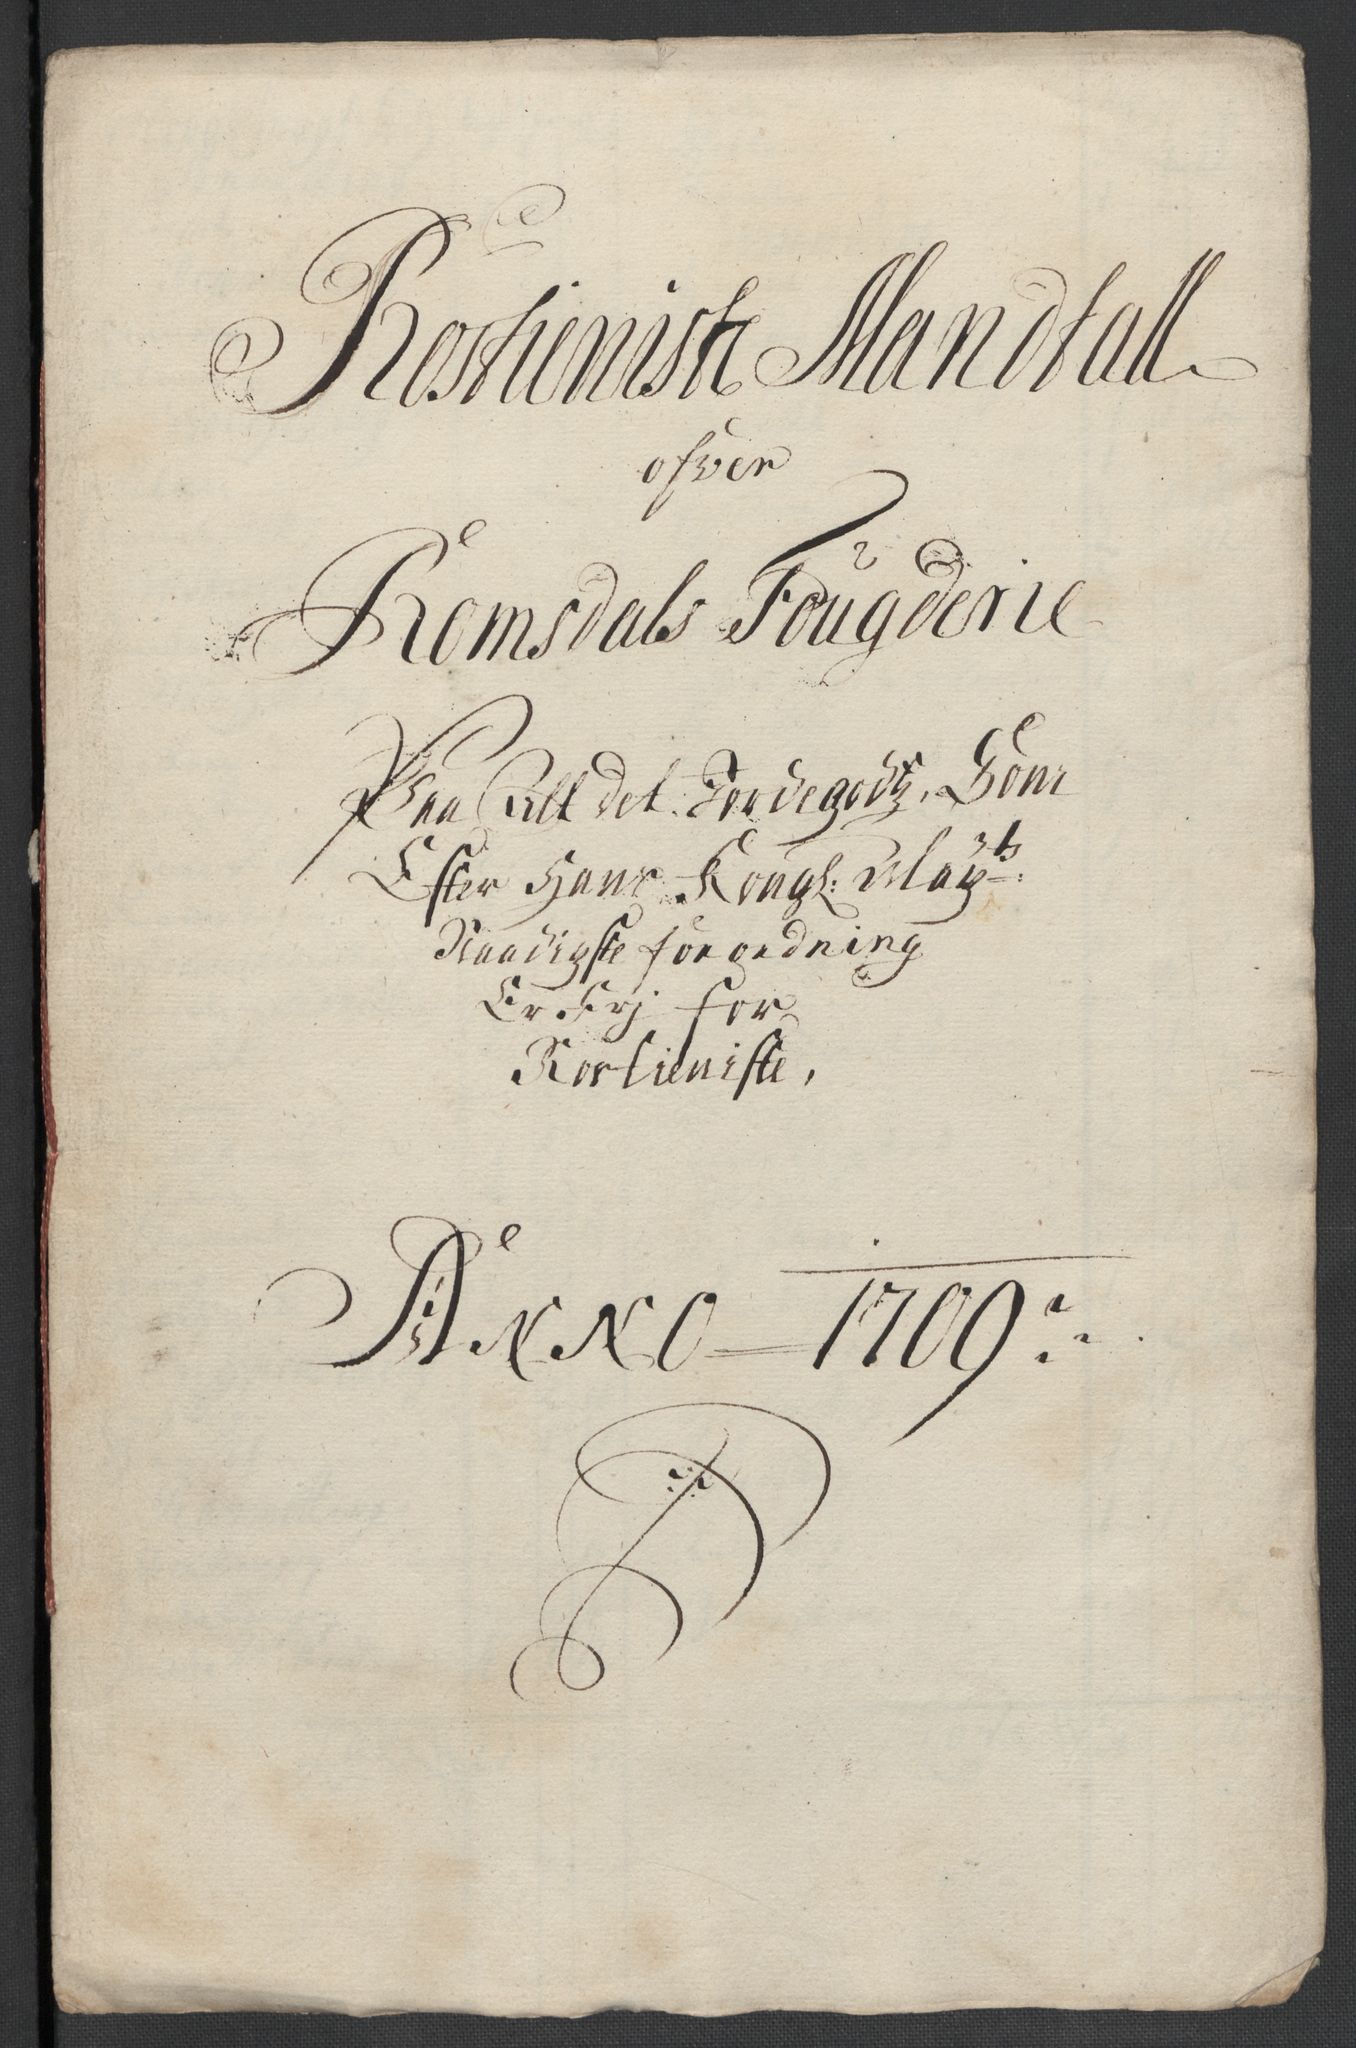 Rostieniste Mandtall
ofver
Romsdals Fougderie
Paa Alt det Jordegodtz, Som
Efter Hans Kongl: Mayts:
Naadigste forordning
Er frj for
Rostieniste,
Anno 1709: